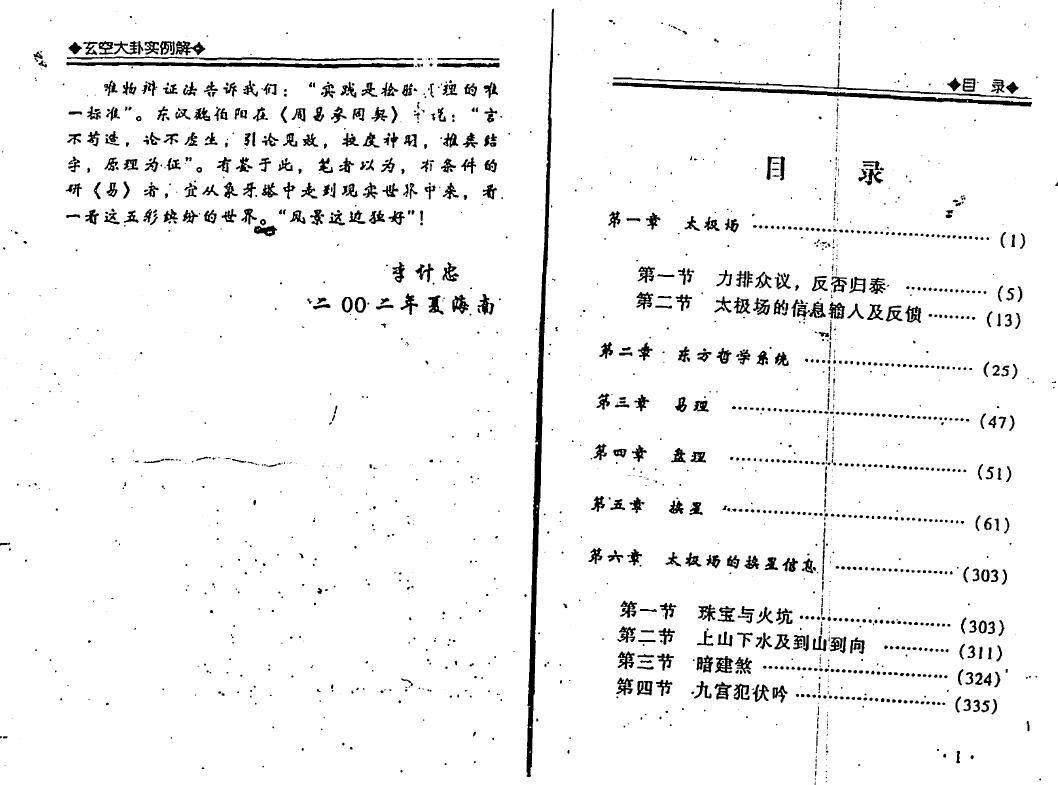 ◆玄空大卦实例解◆
唯物辩证法告诉我们：“实践是检验 理的唯
一标准”。东汉魏伯阳在《周易参同契》 说：“言
不苟造，论不虚生，引论见效，校度神明，推类结
字，原理为征”。有鉴于此，笔者以为，有条件的
研《易》者，宜从象牙塔中走到现实世界中来，看
一看这五彩缤纷的世界。“风景这边独好”！
李计忠
二00二年夏海南
◆目 录◆
目 录
第一章 太极场 ………………………………(1)
第一节 力排众议，反否归泰 ……………(5)
第二节 太极场的信息输人及反馈………(13)
第二章 东方哲学系统 ……………………(25)
第三章 易理 ………………………………(47)
第四章 盘理 ………………………………(51)
第五章 挨星 ………………………………(61)
第六章 太极场的挨星信息 ………………(303)
第一节 珠宝与火坑………………………(303)
第二节 上山下水及到山到向 …………(311)
第三节 暗建煞……………………………(324)
第四节 九宫犯伏吟………………………(335)
· I ·